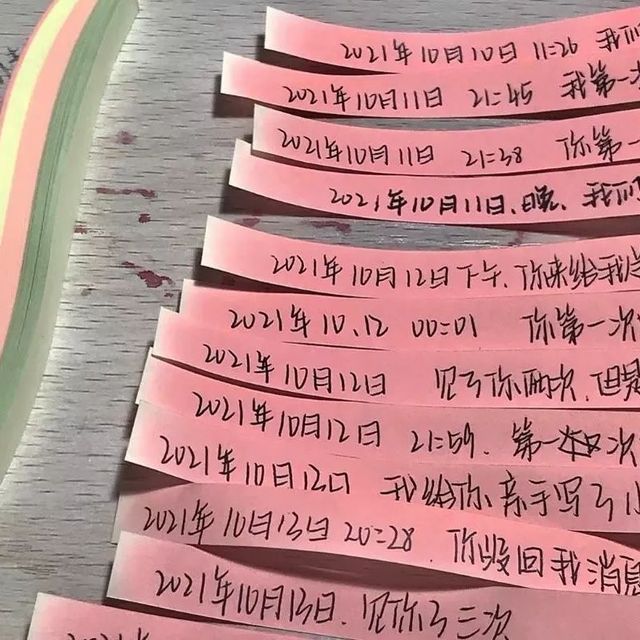 2021年10月10日 11:26 我们
2021年10月11日 21:45 我第一次
2021年10月11日 21:38 你第一
2021年10月11日.晚. 我们
2021年10月12日下午.你来给我
2021年10.12 00:01 你第一次
2021年10月12日 见了你两次.但是
2021年10月12日 21:59. 第一次
2021年10月12日 我给你亲手写了
2021年10月13日 20:28.你没回我消息
2021年10月13日.见你了三次
2021年